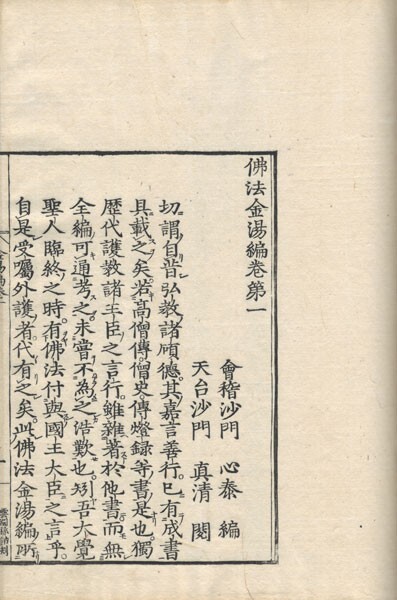 佛法金湯編卷第一
會稽沙門 心泰 編
天台沙門 真清 閱
切謂自昔弘教諸碩德其嘉言善行已有成書
具載之矣若高僧傳僧史傳燈録等書是也獨
歷代護教諸王臣之言行雖雜著於他書而無
全編可通考之未嘗不為之浩歎也矧吾大覺
聖人臨終之時有佛法付與國王大臣之言乎
自是受囑外護者代有之矣此佛法金湯編所